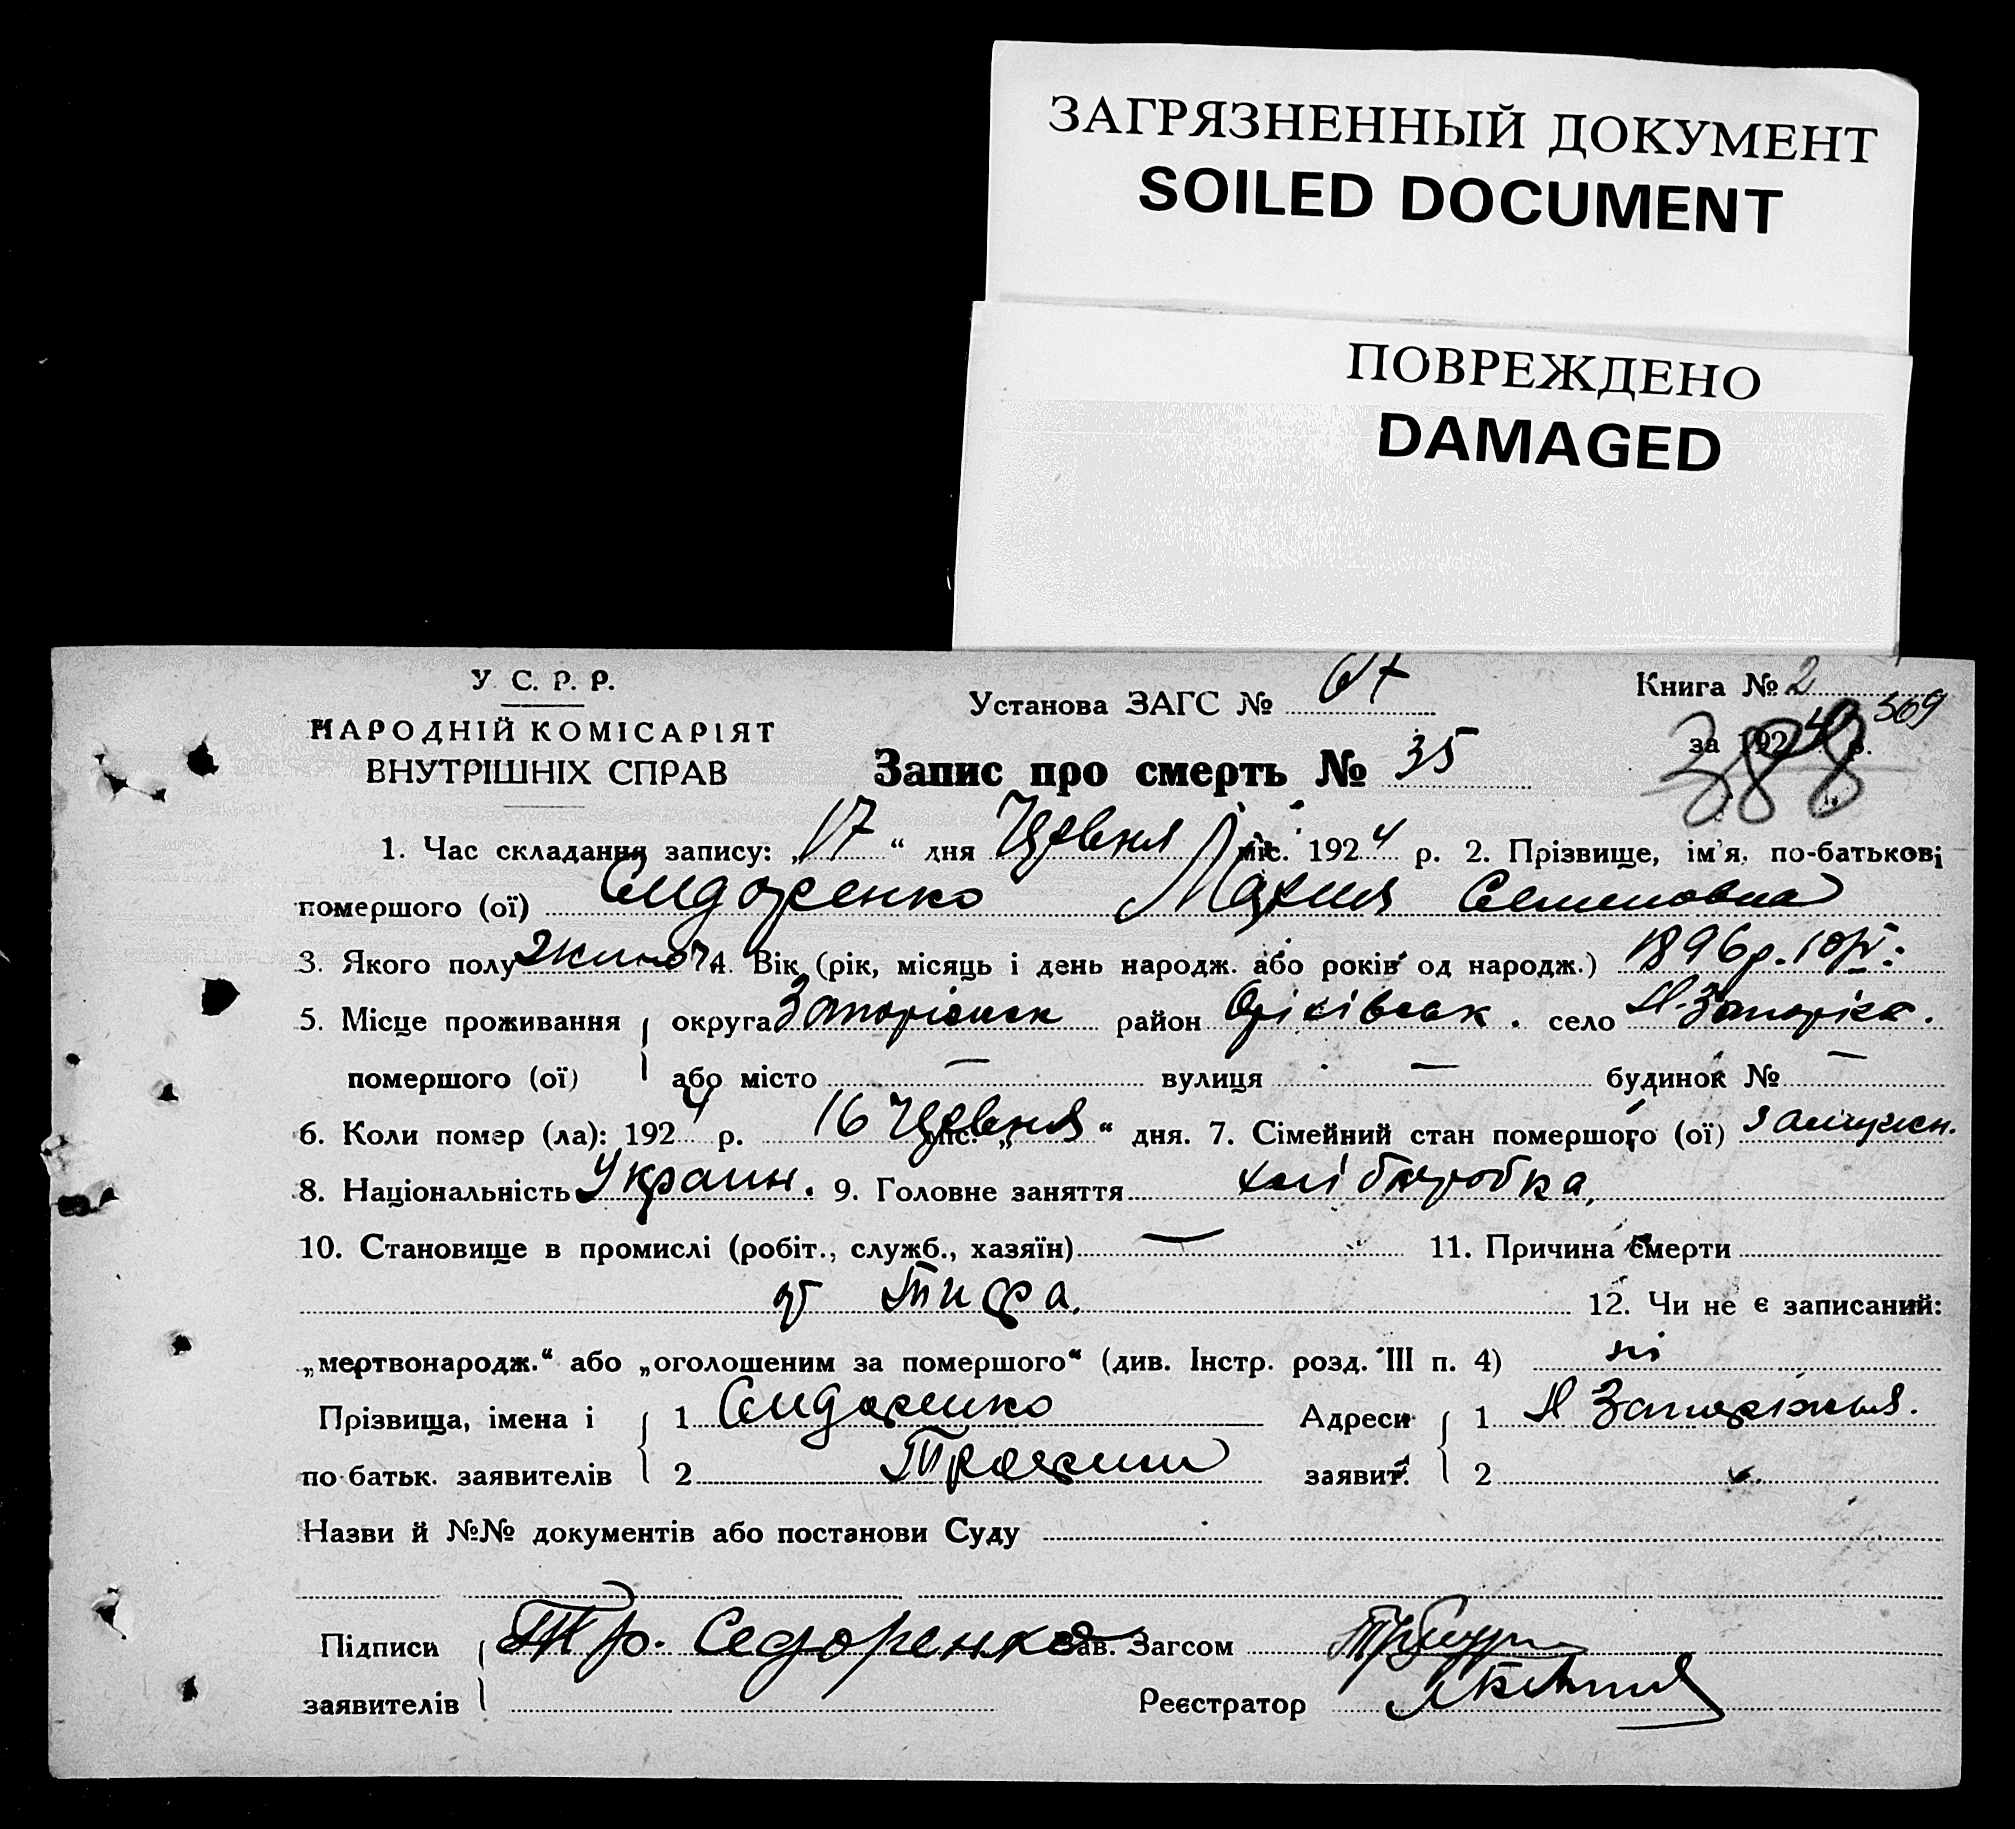 ЗАГРЯЗНЕННЫЙ ДОКУМЕНТ
SOILED DOCUMENT
ПОВРЕЖДЕНО
DAMAGED
У. С. Р. Р.
НАРОДНІЙ КОМІСАРІЯТ
ВНУТРІШНІХ СПРАВ
Установа ЗАГС №
Книга № 2
за 1924 р.
569
388
Запис про смерть № 35
1. Час складання запису: „17“ дня Червня міс. 1924 р. 2. Прізвище, ім'я, по-батькові
помершого (ої) Сидоренко Мария Семеновна
3. Якого полу жиноч 4. Вік (рік, місяць і день народж. або років од народж.) 1896 р.
5. Місце проживання помершого (ої) округа Запоріжск район Оріхівськ. село Н. Запоріжж.
або місто — вулиця — будинок № —
6. Коли помер (ла): 1924 р. 16 Червня міс. „ “ дня. 7. Сімейний стан помершого (ої) замужн.
8. Національність Украин. 9. Головне заняття хлібаробка,
10. Становище в промислі (робіт., служб., хазяїн) — 11. Причина смерти
от Тифа. 12. Чи не є записаний:
„мертвонародж.“ або „оголошеним за помершого“ (див. Інстр. розд. III п. 4) ні
Прізвища, імена і по батьк. заявителів 1 Сидоренко Адреси заявит. 1 Н Запоріжья.
2 Трохим 2
Назви й №№ документів або постанови Суду
Підписи заявителів Тр. Седоренко Зав. Загсом
Реєстратор